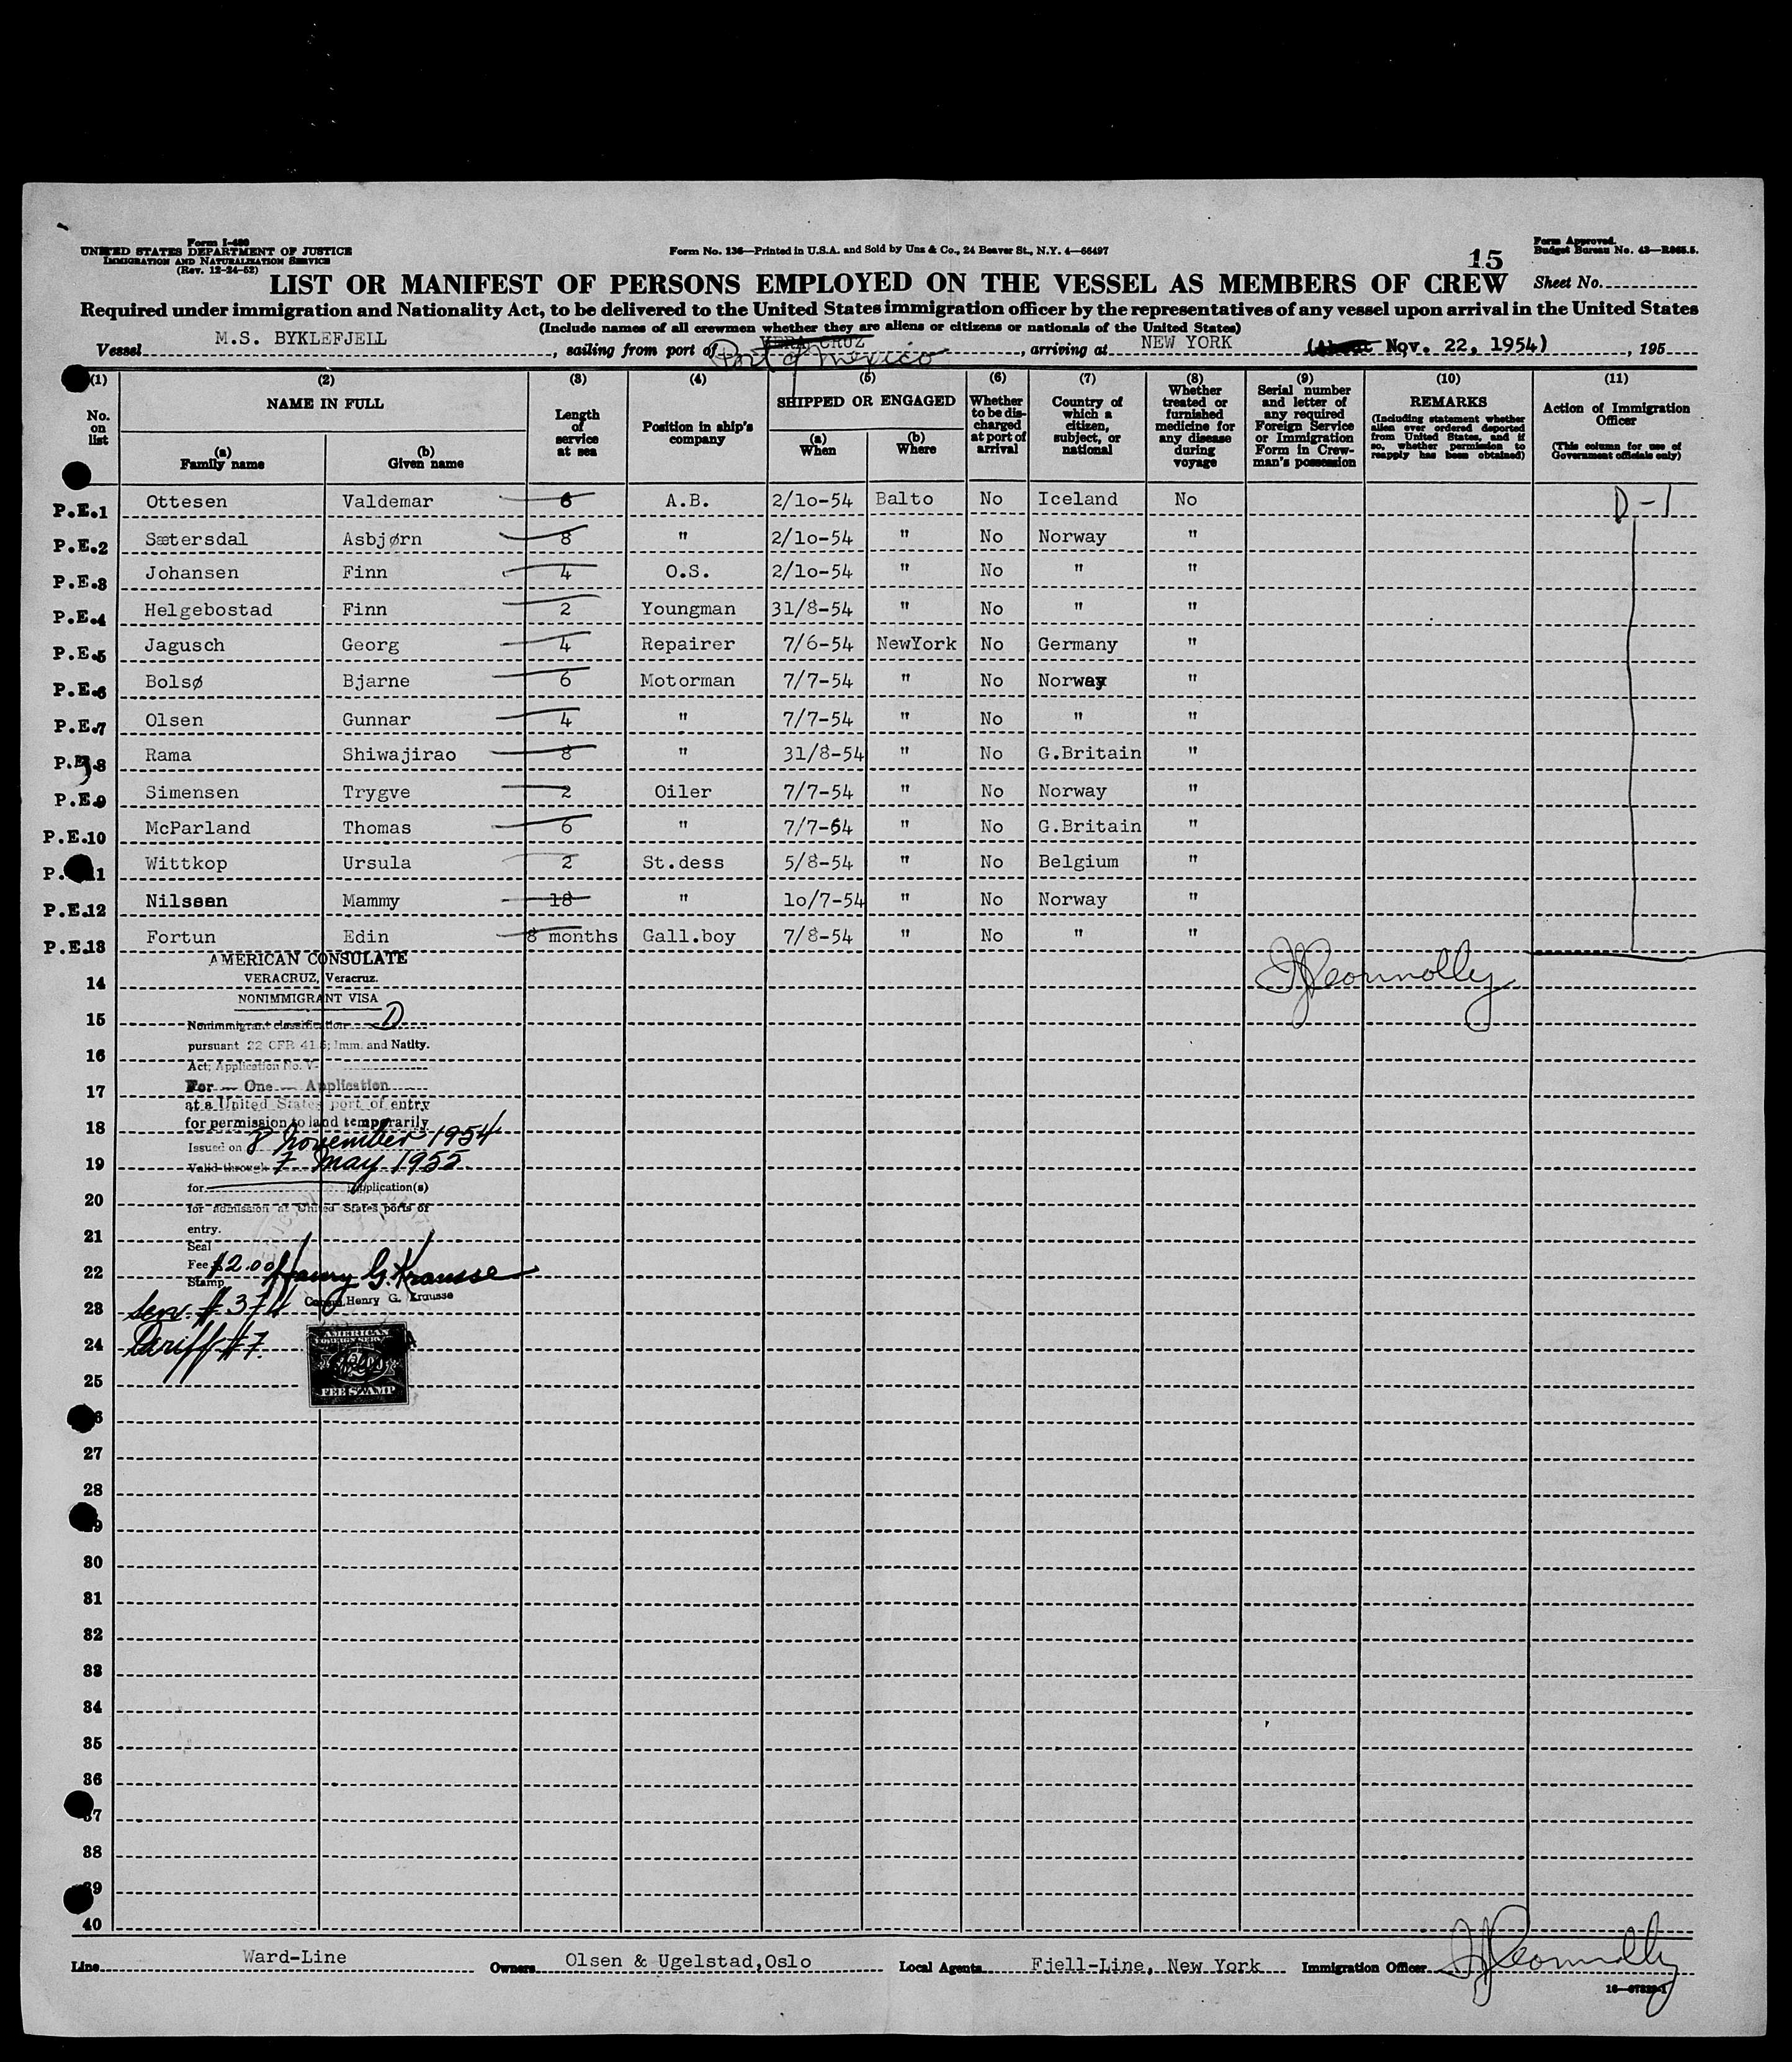 Form I-480
UNITED STATES DEPARTMENT OF JUSTICE
IMMIGRATION AND NATURALIZATION SERVICE
(Rev. 12-24-52)
Form No. 136—Printed in U.S.A. and Sold by Unz & Co., 24 Beaver St., N.Y. 4—66497
15
Form Approved.
Budget Bureau No. 43—R065.5.
LIST OR MANIFEST OF PERSONS EMPLOYED ON THE VESSEL AS MEMBERS OF CREW
Sheet No.
Required under immigration and Nationality Act, to be delivered to the United States immigration officer by the representatives of any vessel upon arrival in the United States
(Include names of all crewmen whether they are aliens or citizens or nationals of the United States)
Vessel M.S. BYKLEFJELL, sailing from port of VERA CRUZ Port of Mexico, arriving at NEW YORK (About Nov. 22, 1954), 195
(1) (2) (3) (4) (5) (6) (7) (8) (9) (10) (11)
No. on list
NAME IN FULL
(a) Family name
(b) Given name
Length of service at sea
Position in ship's company
SHIPPED OR ENGAGED
(a) When
(b) Where
Whether to be discharged at port of arrival
Country of which a citizen, subject, or national
Whether treated or furnished medicine for any disease during voyage
Serial number and letter of any required Foreign Service or Immigration Form in Crewman's possession
REMARKS
(Including statement whether alien ever ordered deported from United States, and if so, whether permission to reapply has been obtained)
Action of Immigration Officer
(This column for use of Government officials only)
P.E.1 Ottesen Valdemar 6 A.B. 2/10-54 Balto No Iceland No D-1
P.E.2 Sætersdal Asbjørn 8 " 2/10-54 " No Norway "
P.E.3 Johansen Finn 4 O.S. 2/10-54 " No " "
P.E.4 Helgebostad Finn 2 Youngman 31/8-54 " No " "
P.E.5 Jagusch Georg 4 Repairer 7/6-54 NewYork No Germany "
P.E.6 Bolsø Bjarne 6 Motorman 7/7-54 " No Norway "
P.E.7 Olsen Gunnar 4 " 7/7-54 " No " "
P.E.8 Rama Shiwajirao 8 " 31/8-54 " No G.Britain "
P.E.9 Simensen Trygve 2 Oiler 7/7-54 " No Norway "
P.E.10 McParland Thomas 6 " 7/7-54 " No G.Britain "
P. 11 Wittkop Ursula 2 St.dess 5/8-54 " No Belgium "
P.E.12 Nilssen Mammy 18 " 10/7-54 " No Norway "
P.E.13 Fortun Edin 8 months Gall.boy 7/8-54 " No " "
AMERICAN CONSULATE
VERACRUZ, Veracruz.
NONIMMIGRANT VISA
Nonimmigrant classification D
pursuant 22 CFR 41.5; Imm. and Natlty.
Act; Application No. V-
For — One — Application
at a United States port of entry
for permission to land temporarily
Issued on 8 November 1954
Valid through 7 May 1955
for Application(s)
for admission at United States ports of
entry.
Seal
Fee $2.00 Henry G. Krausse
Stamp
Henry G. Krausse
Serv. #
Tariff #7.
AMERICAN
FOREIGN SERVICE
FEE STAMP
14
15
16
17
18
19
20
21
22
23
24
25
27
28
30
31
32
33
34
35
36
37
38
39
40
Line Ward-Line Owners Olsen & Ugelstad, Oslo Local Agents Fjell-Line, New York Immigration Officer